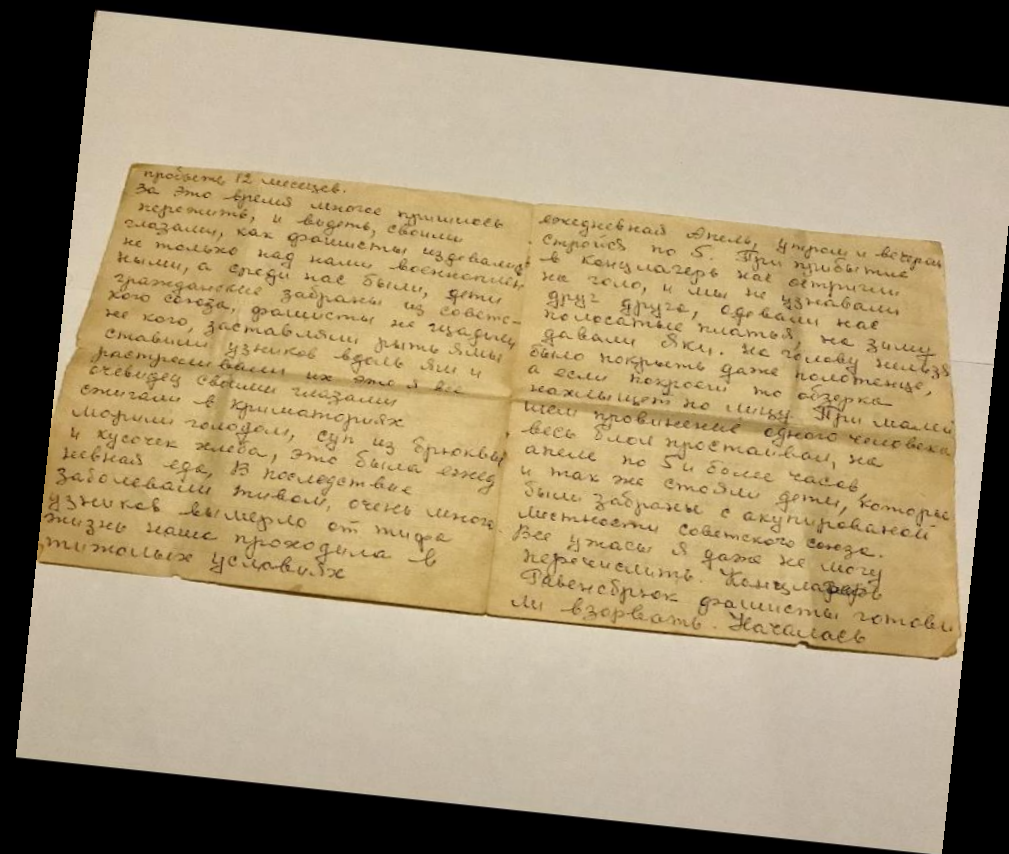 пробыть 12 месяцев.
За это время многое пришлось
пережить, и видеть, своими
глазами, как фашисты издевались
не только над нами военноплен
ными, а среди нас были, дети
гражданские забраны из советс-
кого союза, фашисты не щадили
не кого, заставляли рыть ямы
ставили узников вдоль ям и
растреливали их это я все
очевидец своими глазами
сжигали в криматориях
морили голодом, суп из брюквы
и кусочек хлеба, это была ежед
невная еда, В последствие
заболевали тифом, очень много
узников вымерло от тифа
жизнь наша проходила в
тижолых условиях
ежедневная Апель, утром и вечером
стройся по 5. При прибытие
в концлагерь нас остригли
на голо, и мы не узнавали
друг друга, одевали нас
полосатые платья, на зиму
давали Яки. На голову нельзя
было покрыть даже полотенце,
а если покроеш то обзерка
нахлыщет по лицу. При малей
шем провинение одного человека
весь блок простаивал, на
апеле по 5 и более часов
и так же стояли дети, которые
были забраны с акупированой
мистности советского союза.
Все ужасы я даже не могу
перечислить. Концлагерь
Равенсбрюк фашисты готови
ли взорвать. Началась